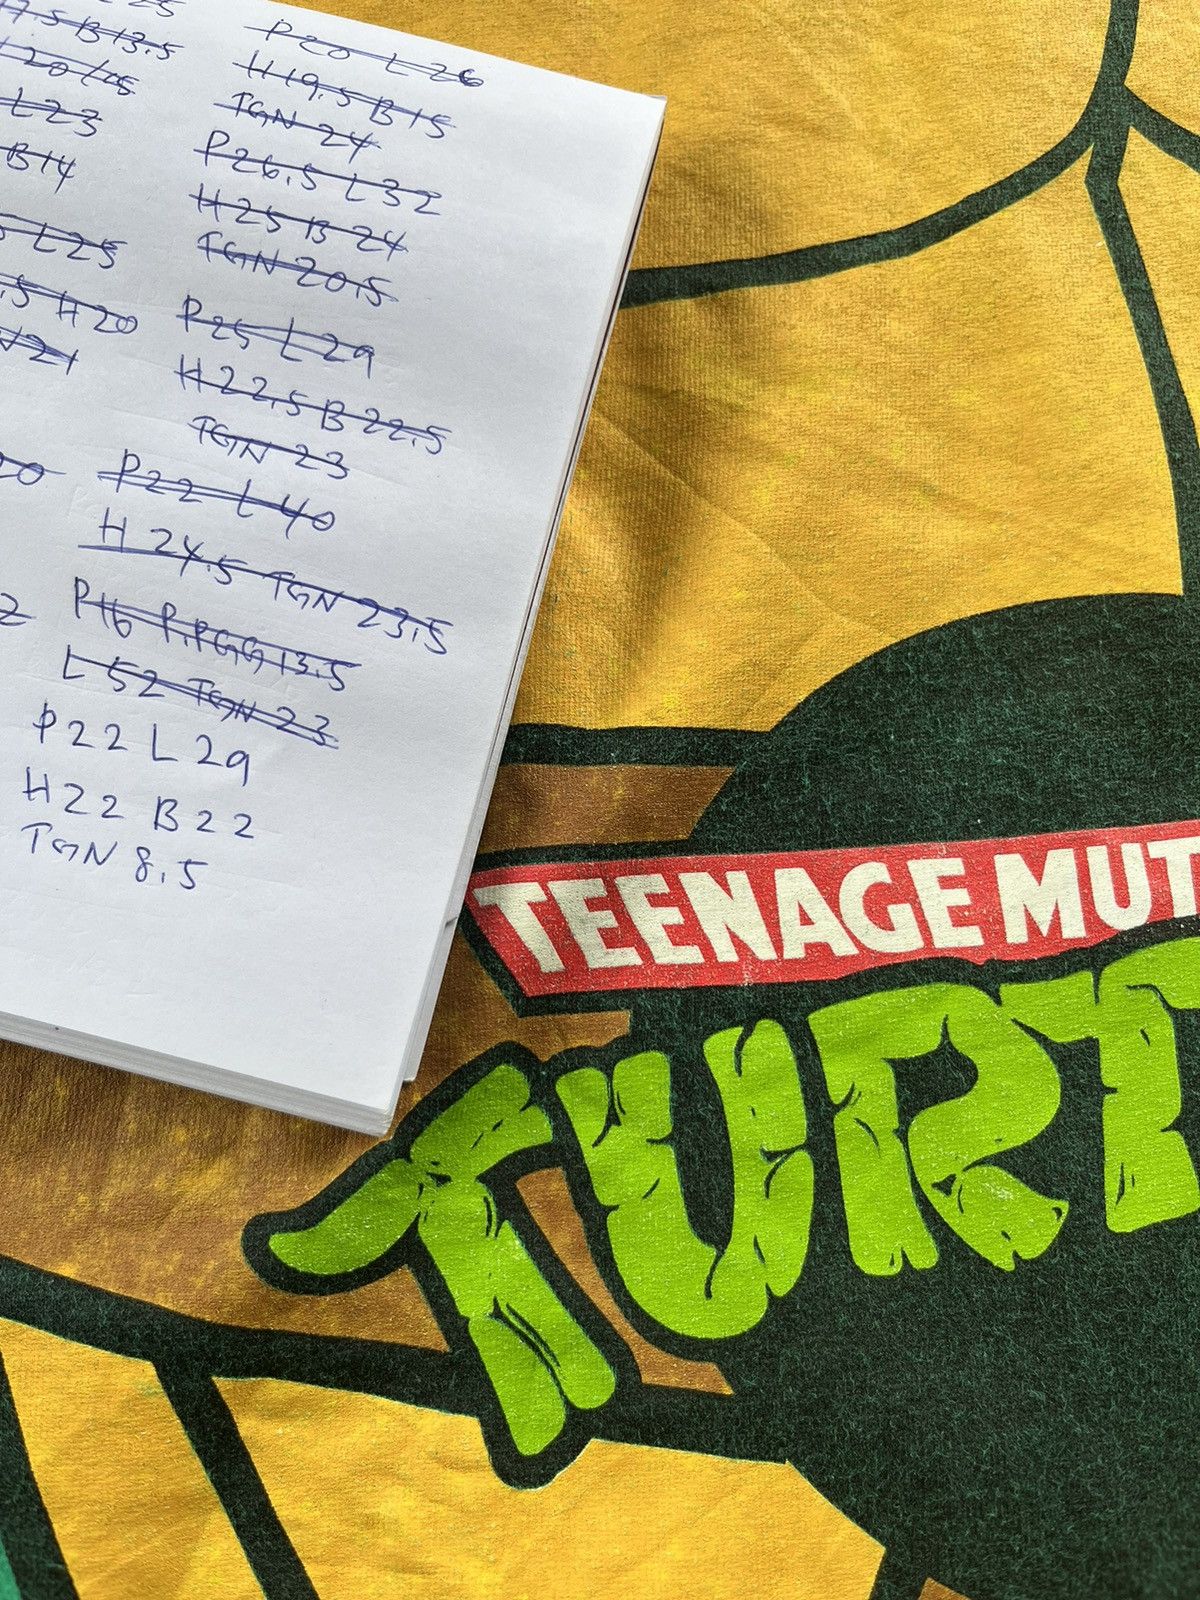 25
7.5 B13.5
L23
B14
L25
.5 H20
N21
20
2
P20 L26
H19.5 B15
TGN 24
P26.5 L32
H25 B 24
TGN 20.5
P25 L29
H22.5 B 22.5
TGN 23
P22 L40
H 24.5 TGN 23.5
P16 P.PGG 13.5
L 52 TGN 23
P22 L 29
H22 B22
TGN 8.5
TEENAGE MUT
TURT